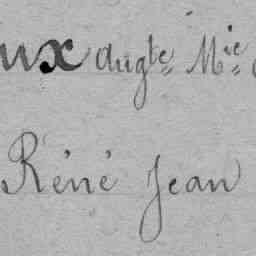 ux Augte Mie
Réné Jean